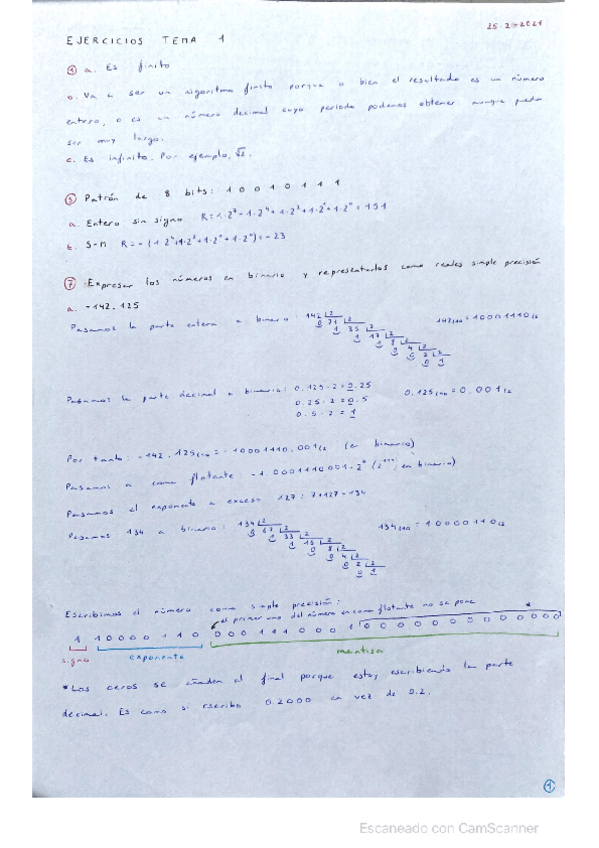 25-2-2021
EJERCICIOS TEMA 1
① a. Es finito
b. Va a ser un algoritmo finito porque o bien el resultado es un número
entero, o es un número decimal cuyo periodo podemos obtener aunque pueda
ser muy largo.
c. Es infinito. Por ejemplo, √2.
Patrón de 8 bits: 10010111
a. Entero sin signo R = 1·2⁷ + 1·2⁴ + 1·2² + 1·2¹ + 1·2⁰ = 151
b. S-M R = - (1·2⁴ + 1·2² + 1·2¹ + 1·2⁰) = -23
⑦ Expresar los números en binario y representarlos como reales simple precisión
a. -142.125
Pasamos la parte entera a binario: 142 |2
0 71 |2
1 35 |2
1 17 |2
1 8 |2
0 4 |2
0 2 |2
0 1
142₍₁₀ = 10001110₍₂
Pasamos la parte decimal a binario: 0.125·2 = 0.25
0.25·2 = 0.5
0.5·2 = 1
0.125₍₁₀ = 0.001₍₂
Por tanto: -142.125₍₁₀ = -10001110.001₍₂ (en binario)
Pasamos a coma flotante: -1.0001110001·2⁷ (2¹¹¹ en binario)
Pasamos el exponente a exceso 127: 7+127=134
Pasamos 134 a binario: 134 |2
0 67 |2
1 33 |2
1 |2
0 8 |2
0 4 |2
0 2 |2
0 1
134₍₁₀ = 10000110₍₂
Escribimos el número como simple precisión:
el primer uno del número en coma flotante no se pone
*
1 10000110 00011100010000000000000
signo exponente mantisa
*Los ceros se añaden al final porque estoy escribiendo la parte
decimal. Es como si escribo 0.2000 en vez de 0.2.
1
Escaneado con CamScanner